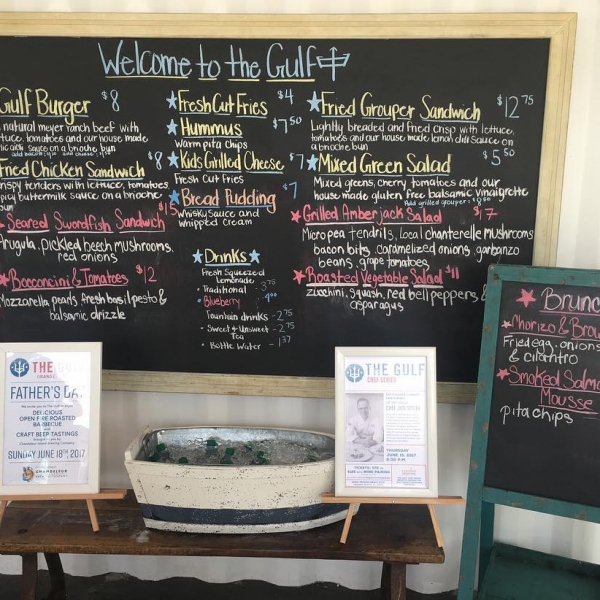 Welcome to the Gulf
Gulf Burger $8
natural meyer ranch beef with
lettuce, tomatoes and our house made
sauce on a brioche bun
Fried Chicken Sandwich $8
crispy tenders with lettuce, tomatoes
spicy buttermilk sauce on a brioche
bun
Seared Swordfish Sandwich
Arugula, pickled beech mushrooms,
red onions
Bocconcini & Tomatoes $12
Mozzarella pearls, fresh basil pesto &
balsamic drizzle
Fresh Cut Fries $4
Hummus $7.50
Warm pita chips
Kids Grilled Cheese $7
Fresh Cut Fries
Bread Pudding $7
Whisky Sauce and
whipped Cream
Drinks
Fresh Squeezed
Lemonade
• Traditional 3.75
• Blueberry 4.00
Fountain drinks - 2.75
• Sweet & Unsweet - 2.75
Tea
• Bottle Water - 1.37
Fried Grouper Sandwich $12.75
Lightly breaded and fried crisp with lettuce,
tomatoes and our house made lemon dill sauce on
a brioche bun
Mixed Green Salad $5.50
Mixed greens, cherry tomatoes and our
house made gluten free balsamic vinaigrette
Add grilled grouper - $8.50
Grilled Amberjack Salad $17
Micro pea tendrils, local chanterelle mushrooms
bacon bits, caramelized onions, garbanzo
beans, grape tomatoes
Roasted Vegetable Salad $11
zucchini, squash, red bell peppers &
asparagus
Brunc
Chorizo & Brow
Fried egg, onions
& cilantro
Smoked Salmo
Mousse
pita chips
THE GULF
ORANGE
FATHER'S DA
DELICIOUS
OPEN FIRE ROASTED
BARBECUE
AND
CRAFT BEER TASTINGS
SUNDAY JUNE 18TH 2017
CHANDELEUR
THE GULF
CHEF SERIES
THURSDAY
6:00 P.M.